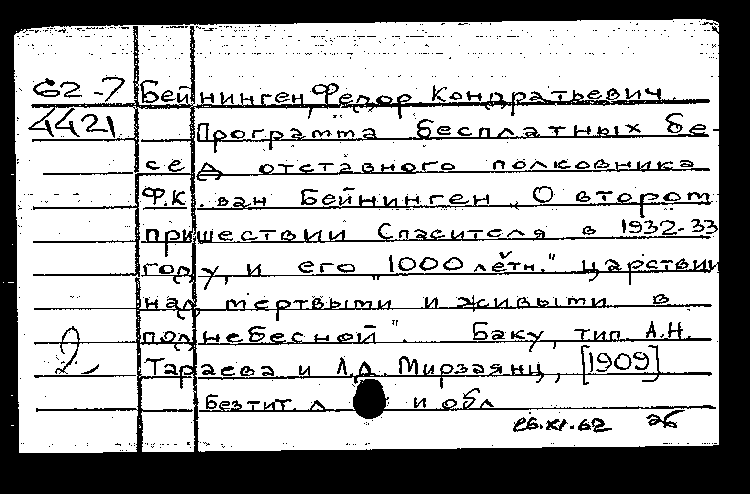 62-7 Бейнинген, Федор Кондратьевич
4421 Программа бесплатных бе-
сед отставного полковника
Ф.К. ван Бейнинген „О втором
пришествии Спасителя в 1932-33
году, и его „1000 летн." царствии
над мертвыми и живыми в
поднебесной". Баку, тип. А.Н.
2 Тараева и Л.Д. Мирзаянц, [1909]
Без тит. л. и обл
26.XI.62 2б